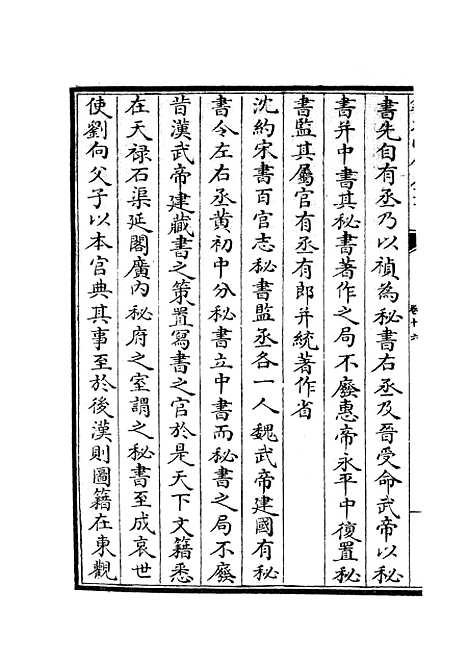 書先自有丞乃以禎為秘書右丞及晉受命武帝以秘
書并中書其秘書著作之局不廢惠帝永平中復置秘
書監其屬官有丞有郎并統著作省
沈約宋書百官志秘書監丞各一人魏武帝建國有秘
書令左右丞黃初中分秘書立中書而秘書之局不廢
昔漢武帝建藏書之策置寫書之官於是天下文籍悉
在天禄石渠延閣廣內秘府之室謂之秘書至成哀世
使劉向父子以本官典其事至於後漢則圖籍在東觀
卷十六